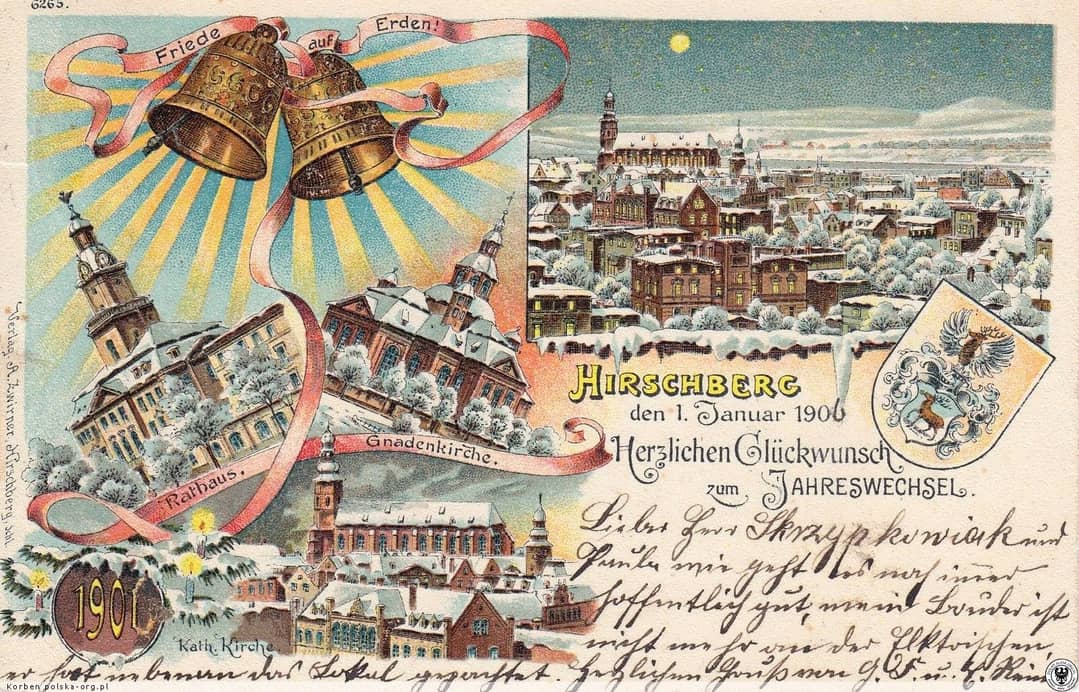 6265.
Friede auf Erden!
HIRSCHBERG
den 1. Januar 1906
Herzlichen Glückwunsch
zum JAHRESWECHSEL.
Gnadenkirche.
Rathaus.
1901
Kath. Kirche
Verlag R. Zwirner, Hirschberg, Schl.
Lieber Herr Skrzypkowiak und
Paula wie geht es noch immer
hoffentlich gut, mein Bruder ist
nicht mehr an der Elktrischen,
er hat nebenan das Lokal gepachtet. Herzlichen Gruß von
Korben polska-org.pl